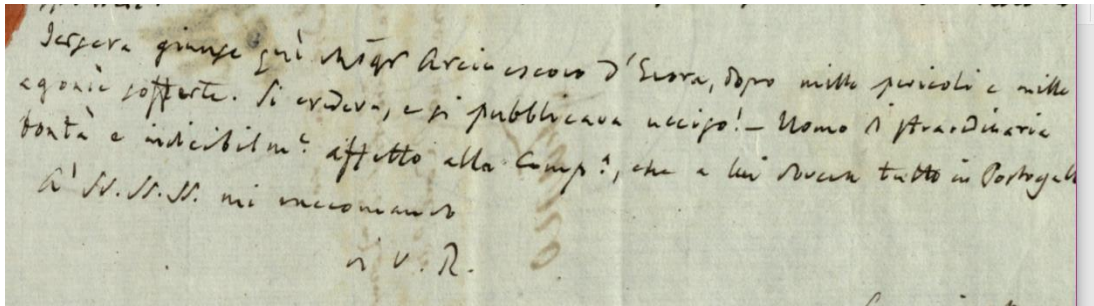 Jersera giunse quì Msgr Arcivescovo d'Evora, dopo mille pericoli e mille
agonie sofferte. Si credeva, e si pubblicava ucciso! – Uomo di straordinaria
bontà e indicibilmᵉ affetto alla Compᵃ, che a lui doveva tutto in Portogallo
A' SS. SS. SS. mi raccomando
di V. R.